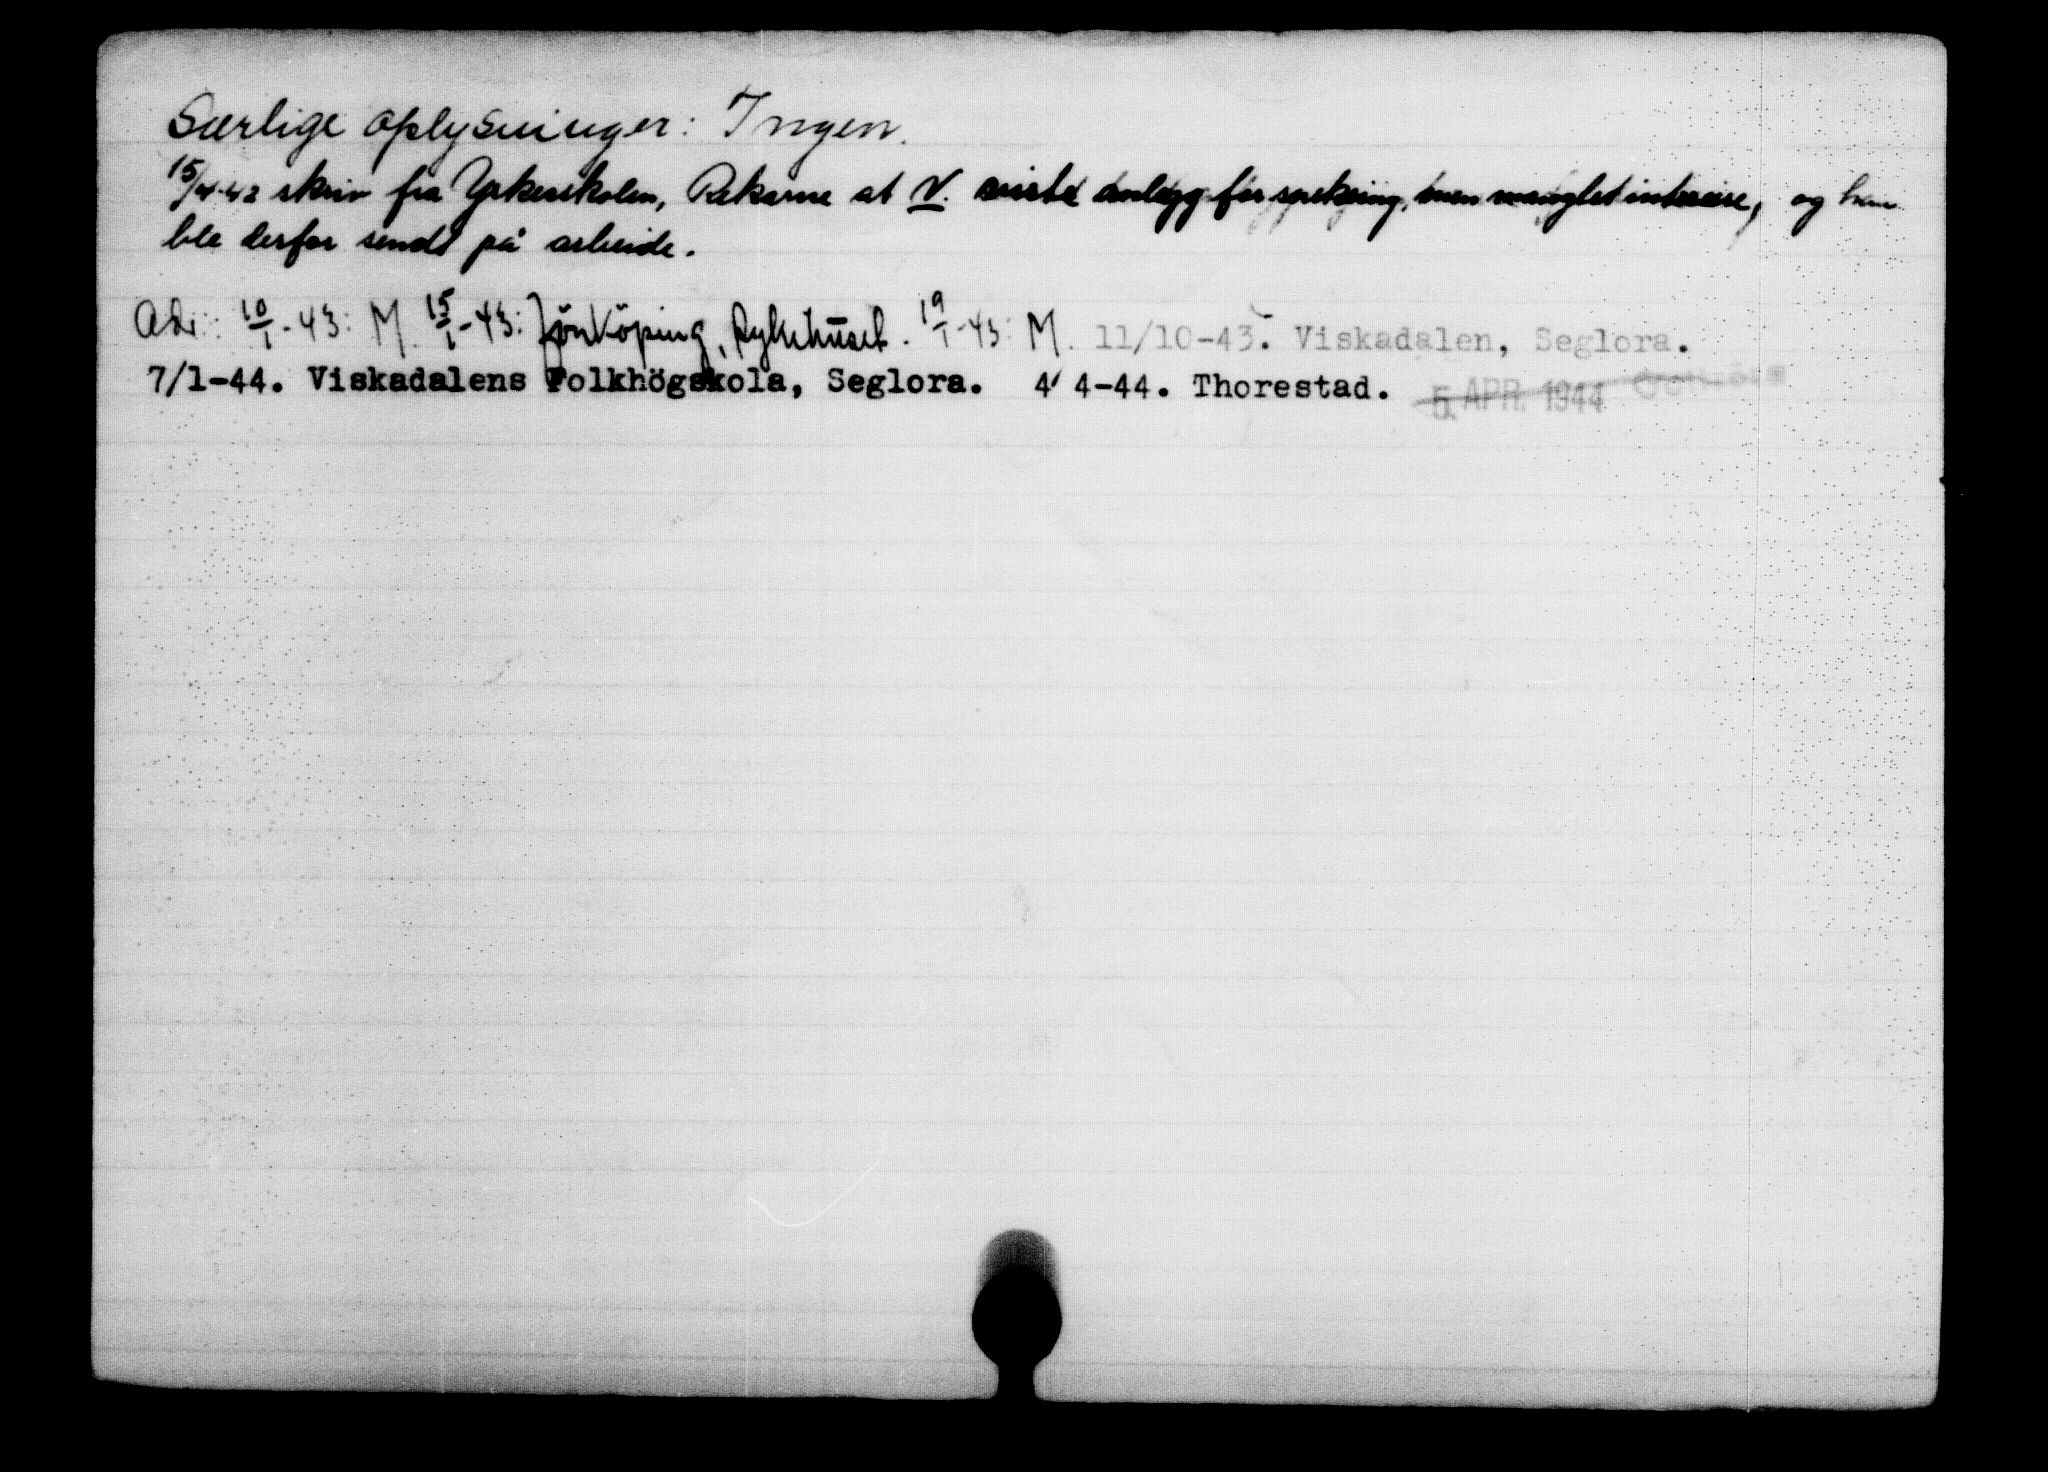 Særlige oplysninger: Ingen.
15/4-42 skriv fra Yrkesskolen, Rekarne at V. viste anlegg for snekring, men manglet interesse, og han
ble derfor sendt på arbeide.
Adr: 10/1-43: M. 15/1-43: Jönköping, Sykehuset. 19/1-43: M. 11/10-43. Viskadalen, Seglora.
7/1-44. Viskadalens Folkhögskola, Seglora. 4/4-44. Thorestad. 5. APR. 1944